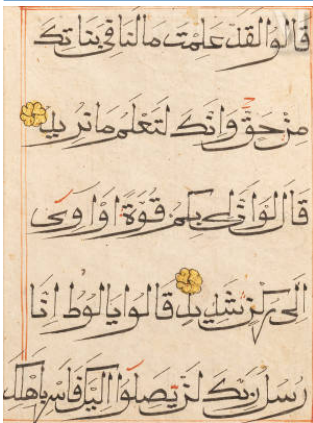 قالوا لقد علمت ما لنا في بناتك
من حق وانك لتعلم ما نريد
قال لو اني بكم قوة او اوي
الى ركن شديد قالوا يا لوط انا
رسل ربك لن يصلوا اليك فاسر باهلك